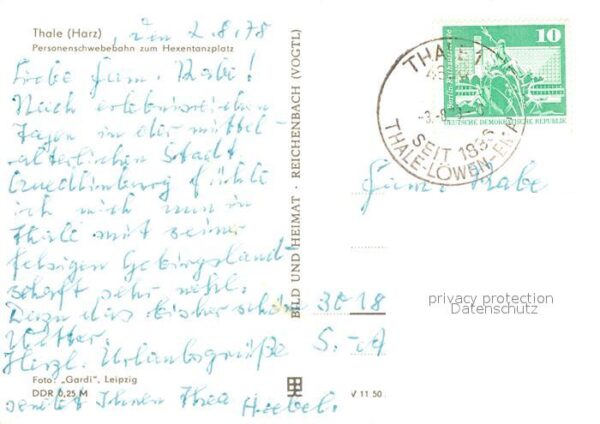 Thale (Harz) , den 2.8.78
Personenschwebebahn zum Hexentanzplatz
Liebe Fam. Rabe!
Nach erlebnisreichen
Tagen in der mittel-
alterlichen Stadt
Quedlinburg fühle
ich mich nun in
Thale mit seiner
felsigen Gebirgsland-
schaft sehr wohl.
Dazu das bisher schöne
Wetter.
Herzl. Urlaubsgrüße
Foto: „Gardi“, Leipzig
DDR 0,25 M
sendet Ihnen Thea Hiebel.
BILD UND HEIMAT · REICHENBACH (VOGTL)
V 11 50
THALE
SEIT 1836
THALE-LÖWEN-EM
10
DEUTSCHE DEMOKRATISCHE REPUBLIK
Fam. Rabe
3018
privacy protection
Datenschutz